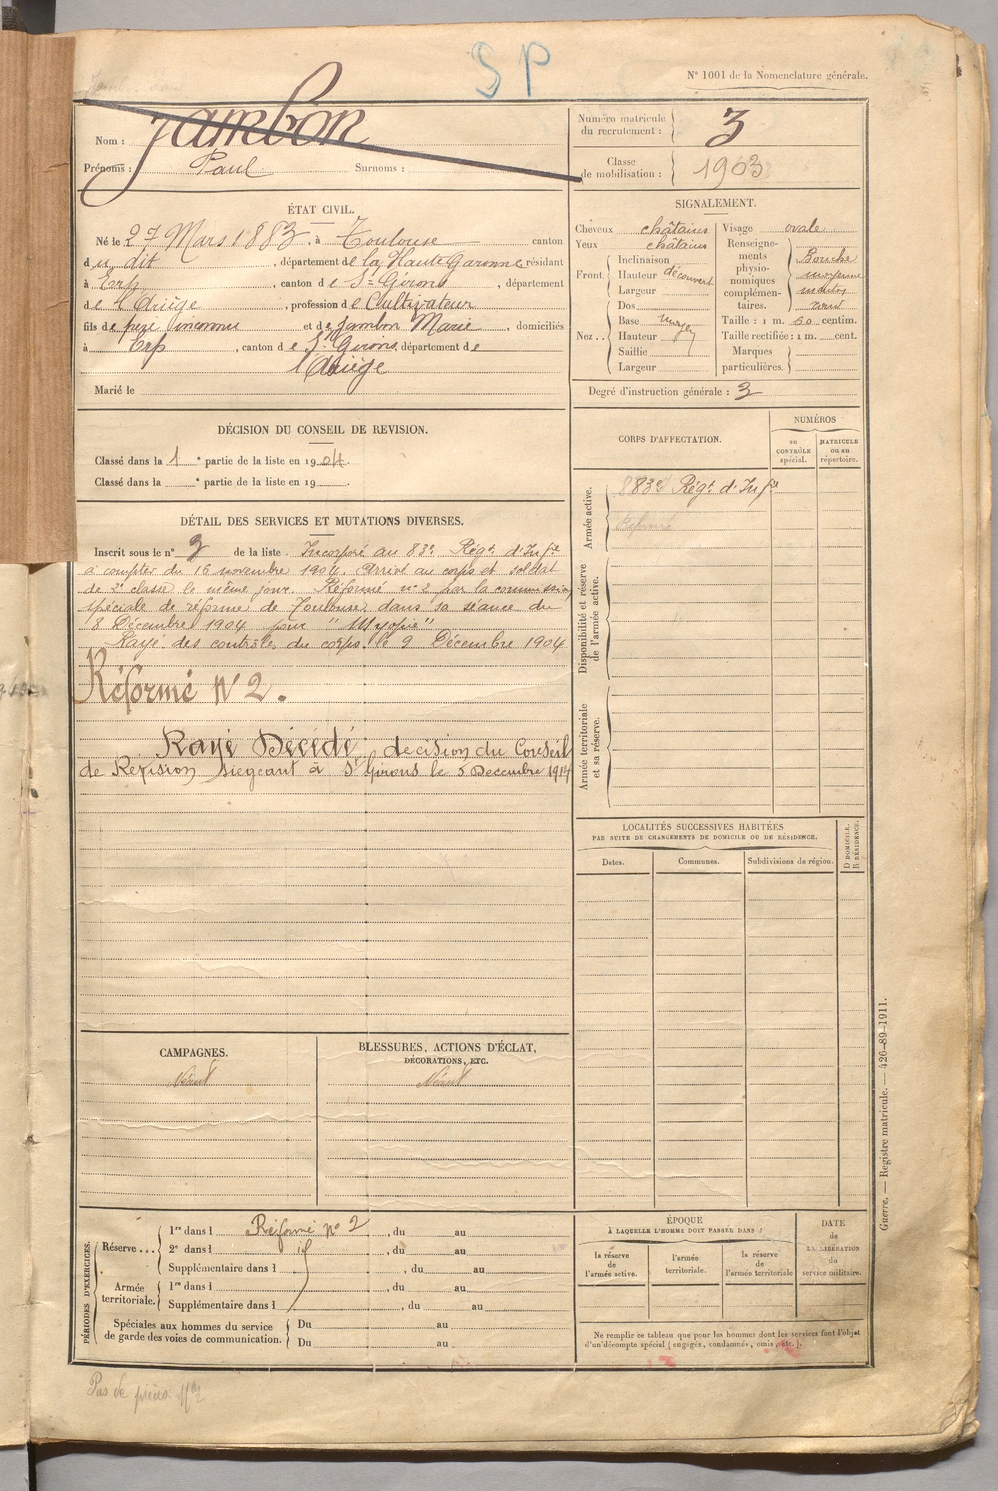 SP
N° 1001 de la Nomenclature générale.
Nom : Jambon
Prénoms : Paul Surnoms :
Numéro matricule du recrutement : 3
Classe de mobilisation : 1903
ÉTAT CIVIL.
Né le 27 Mars 1883, à Toulouse canton
du dit, département de la Haute Garonne résidant
à Erp, canton de St Girons, département
de l'Ariège, profession de Cultivateur
fils de père inconnu et de Jambon Marie, domiciliés
à Erp, canton de St Girons, département de
l'Ariège
Marié le
SIGNALEMENT.
Cheveux châtains
Yeux châtains
Front. Inclinaison
Hauteur découvert
Largeur
Dos
Nez.. Base moyen
Hauteur
Saillie
Largeur
Visage ovale
Renseignements physionomiques complémentaires. Bouche
moyenne
menton
rond
Taille : 1 m. 60 centim.
Taille rectifiée : 1 m. cent.
Marques particulières.
Degré d'instruction générale : 3
DÉCISION DU CONSEIL DE REVISION.
Classé dans la 1e partie de la liste en 1904.
Classé dans la e partie de la liste en 19 .
CORPS D'AFFECTATION.
NUMÉROS
au CONTRÔLE spécial.
MATRICULE ou au répertoire.
Armée active.
83e Régt d'Infie
Disponibilité et réserve de l'armée active.
Armée territoriale et sa réserve.
DÉTAIL DES SERVICES ET MUTATIONS DIVERSES.
Inscrit sous le n° 3 de la liste. Incorporé au 83e Régt d'Infie
à compter du 16 novembre 1904. Arrivé au corps et soldat
de 2e classe le même jour. Réformé n° 2 par la commission
spéciale de réforme de Toulouse dans sa séance du
8 Décembre 1904 pour "Myopie"
Rayé des contrôles du corps le 9 Décembre 1904
Réformé N° 2.
Rayé Décédé decision du Conseil
de Revision siegeant à St Girons le 5 Decembre 1914
LOCALITÉS SUCCESSIVES HABITÉES
PAR SUITE DE CHANGEMENTS DE DOMICILE OU DE RÉSIDENCE.
Dates.
Communes.
Subdivisions de région.
D DOMICILE.
R RÉSIDENCE.
CAMPAGNES.
Néant
BLESSURES, ACTIONS D'ÉCLAT,
DÉCORATIONS, ETC.
Néant
PÉRIODES D'EXERCICES.
Réserve...
1re dans l Réformé n° 2, du au
2e dans l , du au
Supplémentaire dans l , du au
Armée territoriale.
1re dans l , du au
Supplémentaire dans l , du au
Spéciales aux hommes du service
de garde des voies de communication.
Du au
Du au
ÉPOQUE
À LAQUELLE L'HOMME DOIT PASSER DANS :
la réserve de l'armée active.
l'armée territoriale.
la réserve de l'armée territoriale
DATE
de
LA LIBÉRATION
du
service militaire.
Ne remplir ce tableau que pour les hommes dont les services font l'objet
d'un décompte spécial (engagés, condamnés, omis, etc.).
Guerre. — Registre matricule. — 426-89-1911.
Pas de pièces